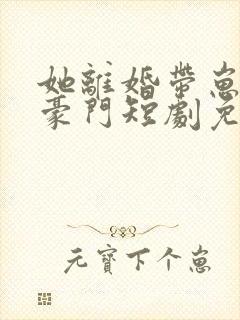 她離婚帶崽
豪門短劇免
元寶下个崽